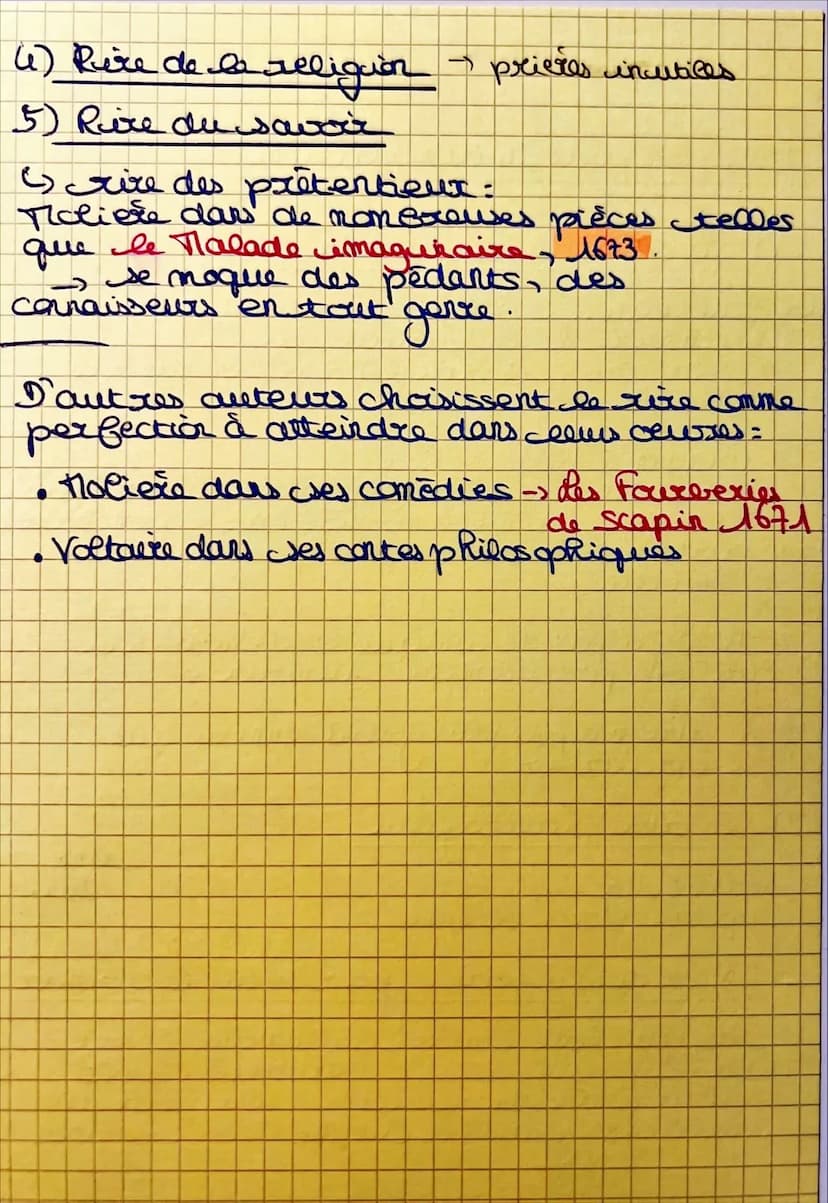 4) Rire de la religion → prières inutiles
5) Rire du savoir
↳ rire des prétentieux :
Molière dans de nombreuses pièces telles
que le Malade imaginaire, 1673.
→ se moque des pédants, des
connaisseurs en tout genre.
D'autres auteurs choisissent le rire comme
perfection à atteindre dans leurs oeuvres :
• Molière dans ses comédies → Les Fourberies
de Scapin 1671
• Voltaire dans ses contes philosophiques